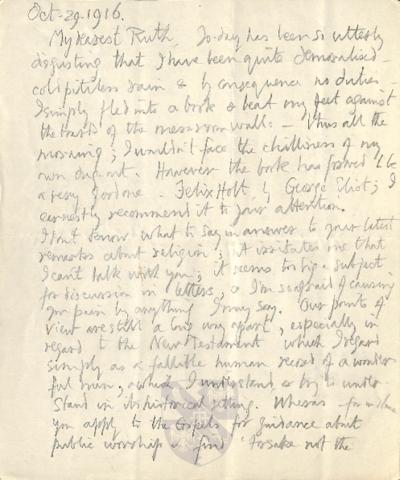 Oct. 29. 1916.
My dearest Ruth, To-day has been so utterly
disgusting that I have been quite demoralised -
cold pitiless rain & by consequence no duties.
I simply fled into a book & beat my feet against
the boards of the mess-room wall: - Thus all the
morning; I wouldn't face the chilliness of my
own dug-out. However the book has proved to be
a very good one - Felix Holt by George Eliot; I
earnestly recommend it to your attention.
I don't know what to say in answer to your latest
remarks about religion; it irritates me that
I can't talk with you; it seems too big a subject
for discussion in letters, & I'm so afraid of causing
you pain by anything I may say. Our points of
view are still a long way apart, especially in
regard to the New Testament which I regard
simply as a fallible human record of a wonder-
ful man, & which I understand, or try to under-
stand in its historical setting. Whereas for instance
you apply to the Gospels for guidance about
public worship & find 'forsake not the